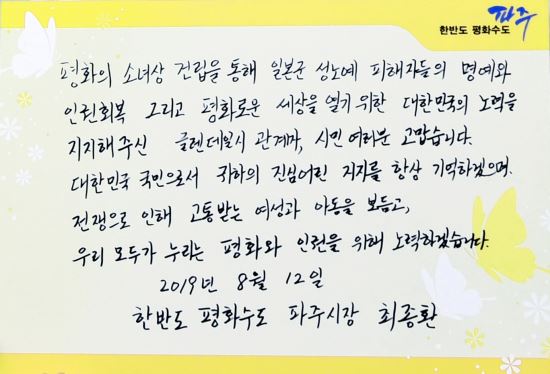 파주
한반도 평화수도
평화의 소녀상 건립을 통해 일본군 성노예 피해자들의 명예와
인권회복 그리고 평화로운 세상을 열기 위한 대한민국의 노력을
지지해주신 글렌데일시 관계자, 시민 여러분 고맙습니다.
대한민국 국민으로서 귀하의 진심어린 지지를 항상 기억하겠으며,
전쟁으로 인해 고통받는 여성과 아동을 보듬고,
우리 모두가 누리는 평화와 인권을 위해 노력하겠습니다.
2019년 8월 12일
한반도 평화수도 파주시장 최종환